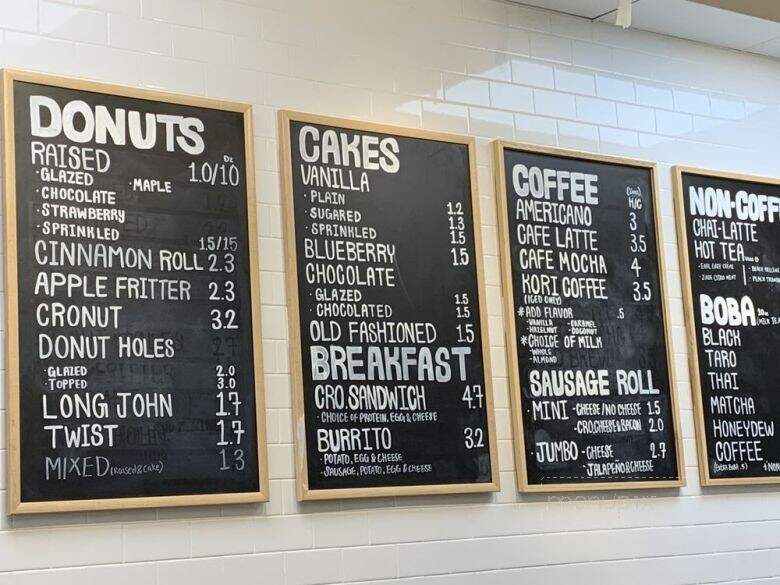 DONUTS
RAISED
Dz
1.0/10
· GLAZED · MAPLE
· CHOCOLATE
· STRAWBERRY
· SPRINKLED
1.5/15
CINNAMON ROLL 2.3
APPLE FRITTER 2.3
CRONUT 3.2
DONUT HOLES
· GLAZED 2.0
· TOPPED 3.0
LONG JOHN 1.7
TWIST 1.7
MIXED (RAISED & CAKE) 1.3
CAKES
VANILLA
· PLAIN 1.2
· SUGARED 1.3
· SPRINKLED 1.5
BLUEBERRY 1.5
CHOCOLATE
· GLAZED 1.5
· CHOCOLATED 1.5
OLD FASHIONED 1.5
BREAKFAST
CRO. SANDWICH 4.7
· CHOICE OF PROTEIN, EGG & CHEESE
BURRITO 3.2
· POTATO, EGG & CHEESE
· SAUSAGE, POTATO, EGG & CHEESE
COFFEE
H/C
AMERICANO 3
CAFE LATTE 3.5
CAFE MOCHA 4
KORI COFFEE 3.5
(ICED ONLY)
*ADD FLAVOR .5
· VANILLA · CARAMEL
· HAZELNUT · COCONUT
*CHOICE OF MILK
· WHOLE
· ALMOND
SAUSAGE ROLL
· MINI - CHEESE/NO CHEESE 1.5
- CRO, CHEESE & BACON 2.0
· JUMBO - CHEESE 2.7
- JALAPEÑO & CHEESE
NON-COFF
CHAI-LATTE
HOT TEA
BOBA
BLACK
TARO
THAI
MATCHA
HONEYDEW
COFFEE
(EXTRA BOBA .5)